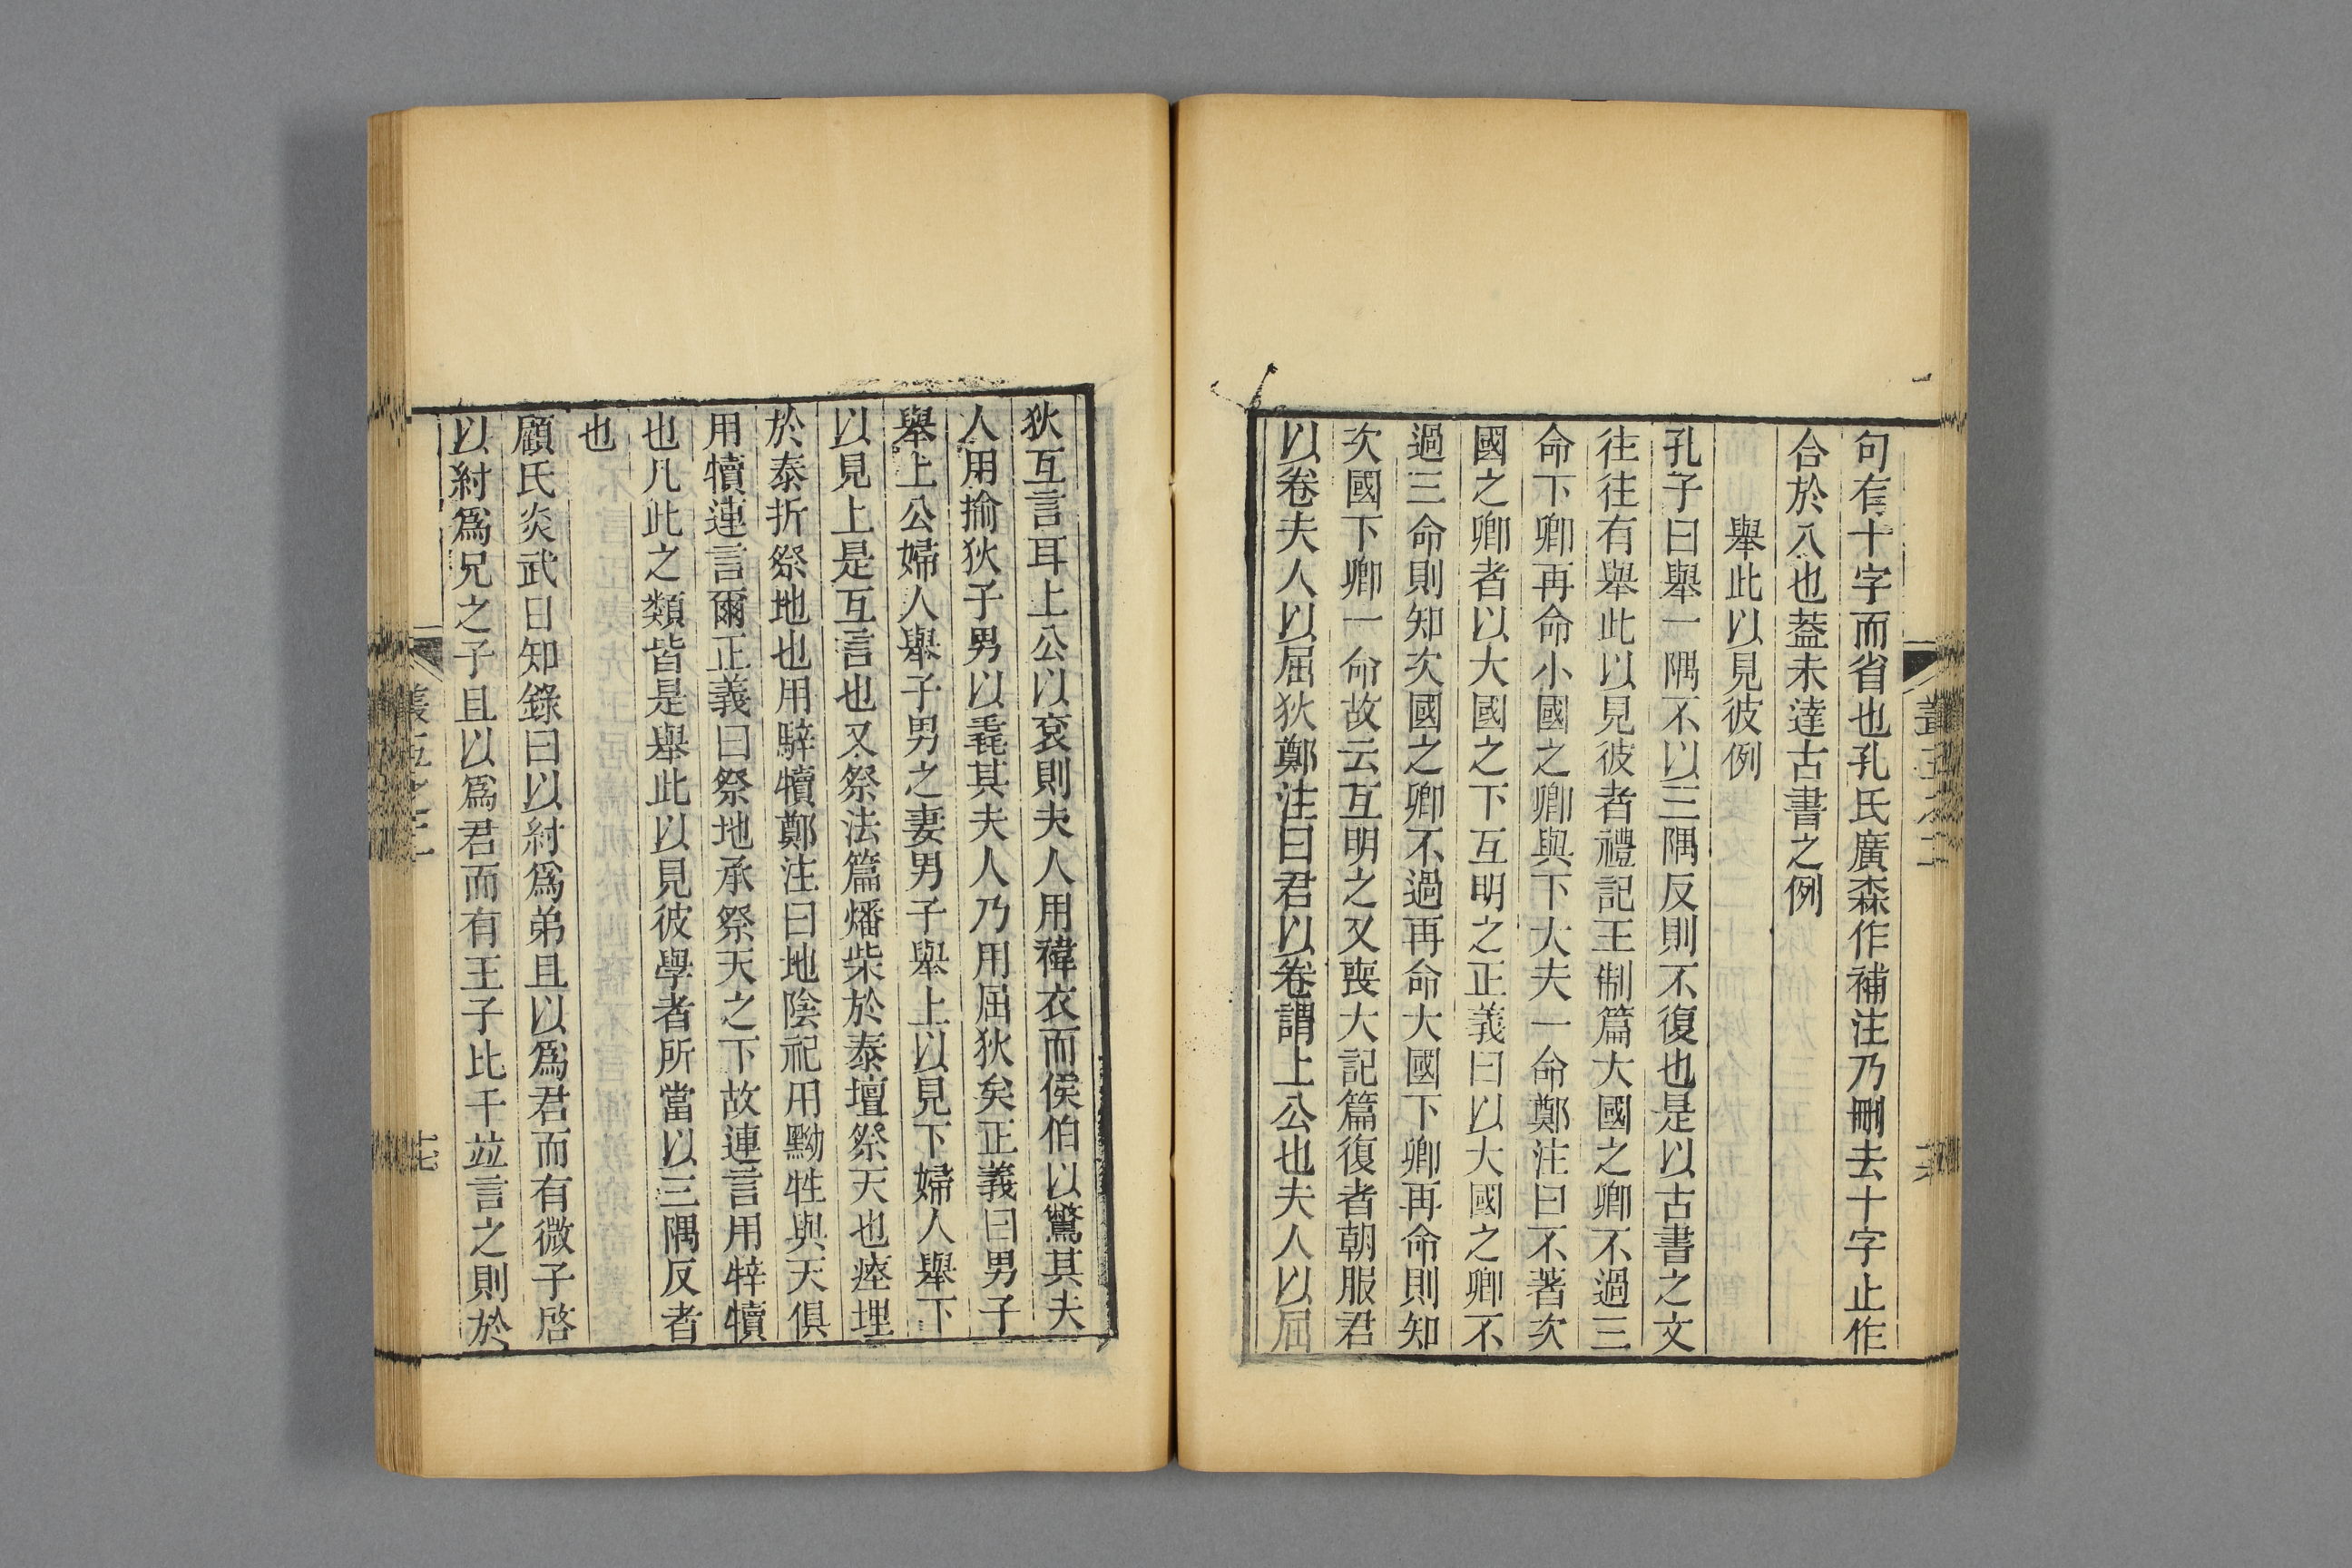 句有十字而省也孔氏廣森作補注乃刪去十字止作
合於八也蓋未達古書之例
舉此以見彼例
孔子曰舉一隅不以三隅反則不復也是以古書之文
往往有舉此以見彼者禮記王制篇大國之卿不過三
命下卿再命小國之卿與下大夫一命鄭注曰不著次
國之卿者以大國之下互明之正義曰以大國之卿不
過三命則知次國之卿不過再命大國下卿再命則知
次國下卿一命故云互明之又喪大記篇復者朝服君
以卷夫人以屈狄鄭注曰君以卷謂上公也夫人以屈
狄互言耳上公以袞則夫人用褘衣而侯伯以鷩其夫
人用揄狄子男以毳其夫人乃用屈狄矣正義曰男子
舉上公婦人舉子男之妻男子舉上以見下婦人舉下
以見上是互言也又祭法篇燔柴於泰壇祭天也瘞埋
於泰折祭地也用騂犢鄭注曰地陰祀用黝牲與天俱
用犢連言爾正義曰祭地承祭天之下故連言用騂犢
也凡此之類皆是舉此以見彼學者所當以三隅反者
也
顧氏炎武日知錄曰以紂爲弟且以爲君而有微子啓
以紂爲兄之子且以爲君而有王子比干竝言之則於